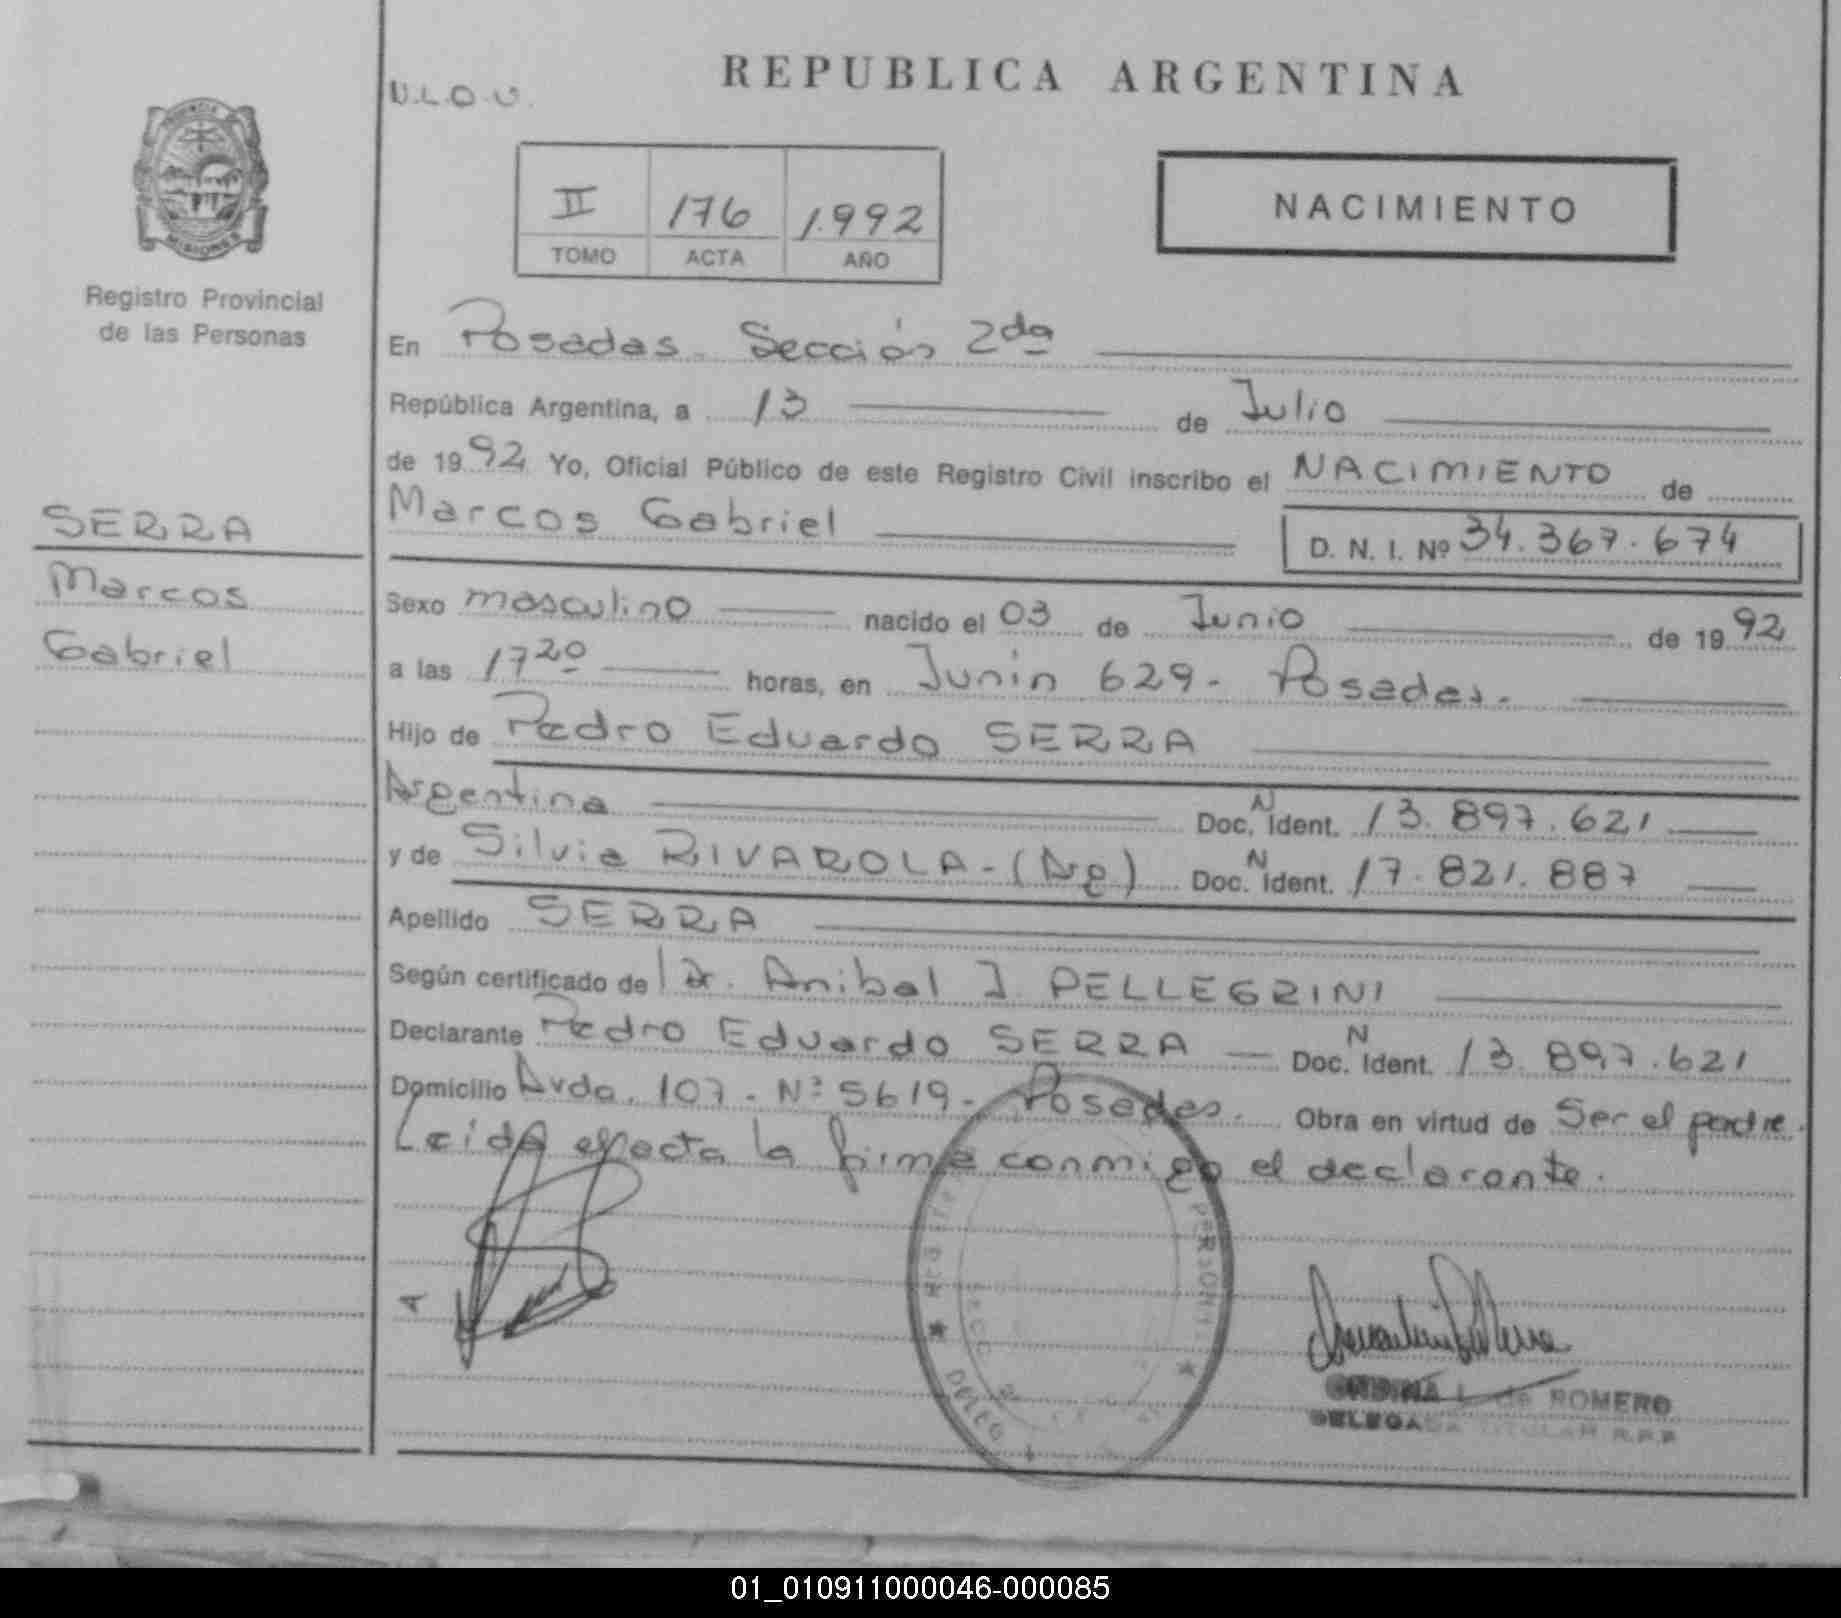 REPUBLICA ARGENTINA
U.L.O.U.
PROVINCIA
MISIONES
Registro Provincial
de las Personas
SERRA
Marcos
Gabriel
II 176 1.992
TOMO ACTA AÑO
NACIMIENTO
En Posadas. Sección 2da
República Argentina, a 13 de Julio
de 1992 Yo, Oficial Público de este Registro Civil inscribo el NACIMIENTO de
Marcos Gabriel D. N. I. Nº 34.367.674
Sexo masculino nacido el 03 de Junio de 1992
a las 17 20 horas, en Junin 629- Posadas.
Hijo de Pedro Eduardo SERRA
Argentina Doc. N Ident. 13.897.621
y de Silvia RIVAROLA-(Arg) Doc. N Ident. 17.821.887
Apellido SERRA
Según certificado de Dr. Anibal J PELLEGRINI
Declarante Pedro Eduardo SERRA Doc. N Ident. 13.897.621
Domicilio Avda. 107- Nº 5619- Posadas. Obra en virtud de Ser el padre.
Leída efecta la firma conmigo el declarante.
PERSONAS
DELEG
L. de ROMERO
DELEGADA TITULAR R.P.P
01_010911000046-000085